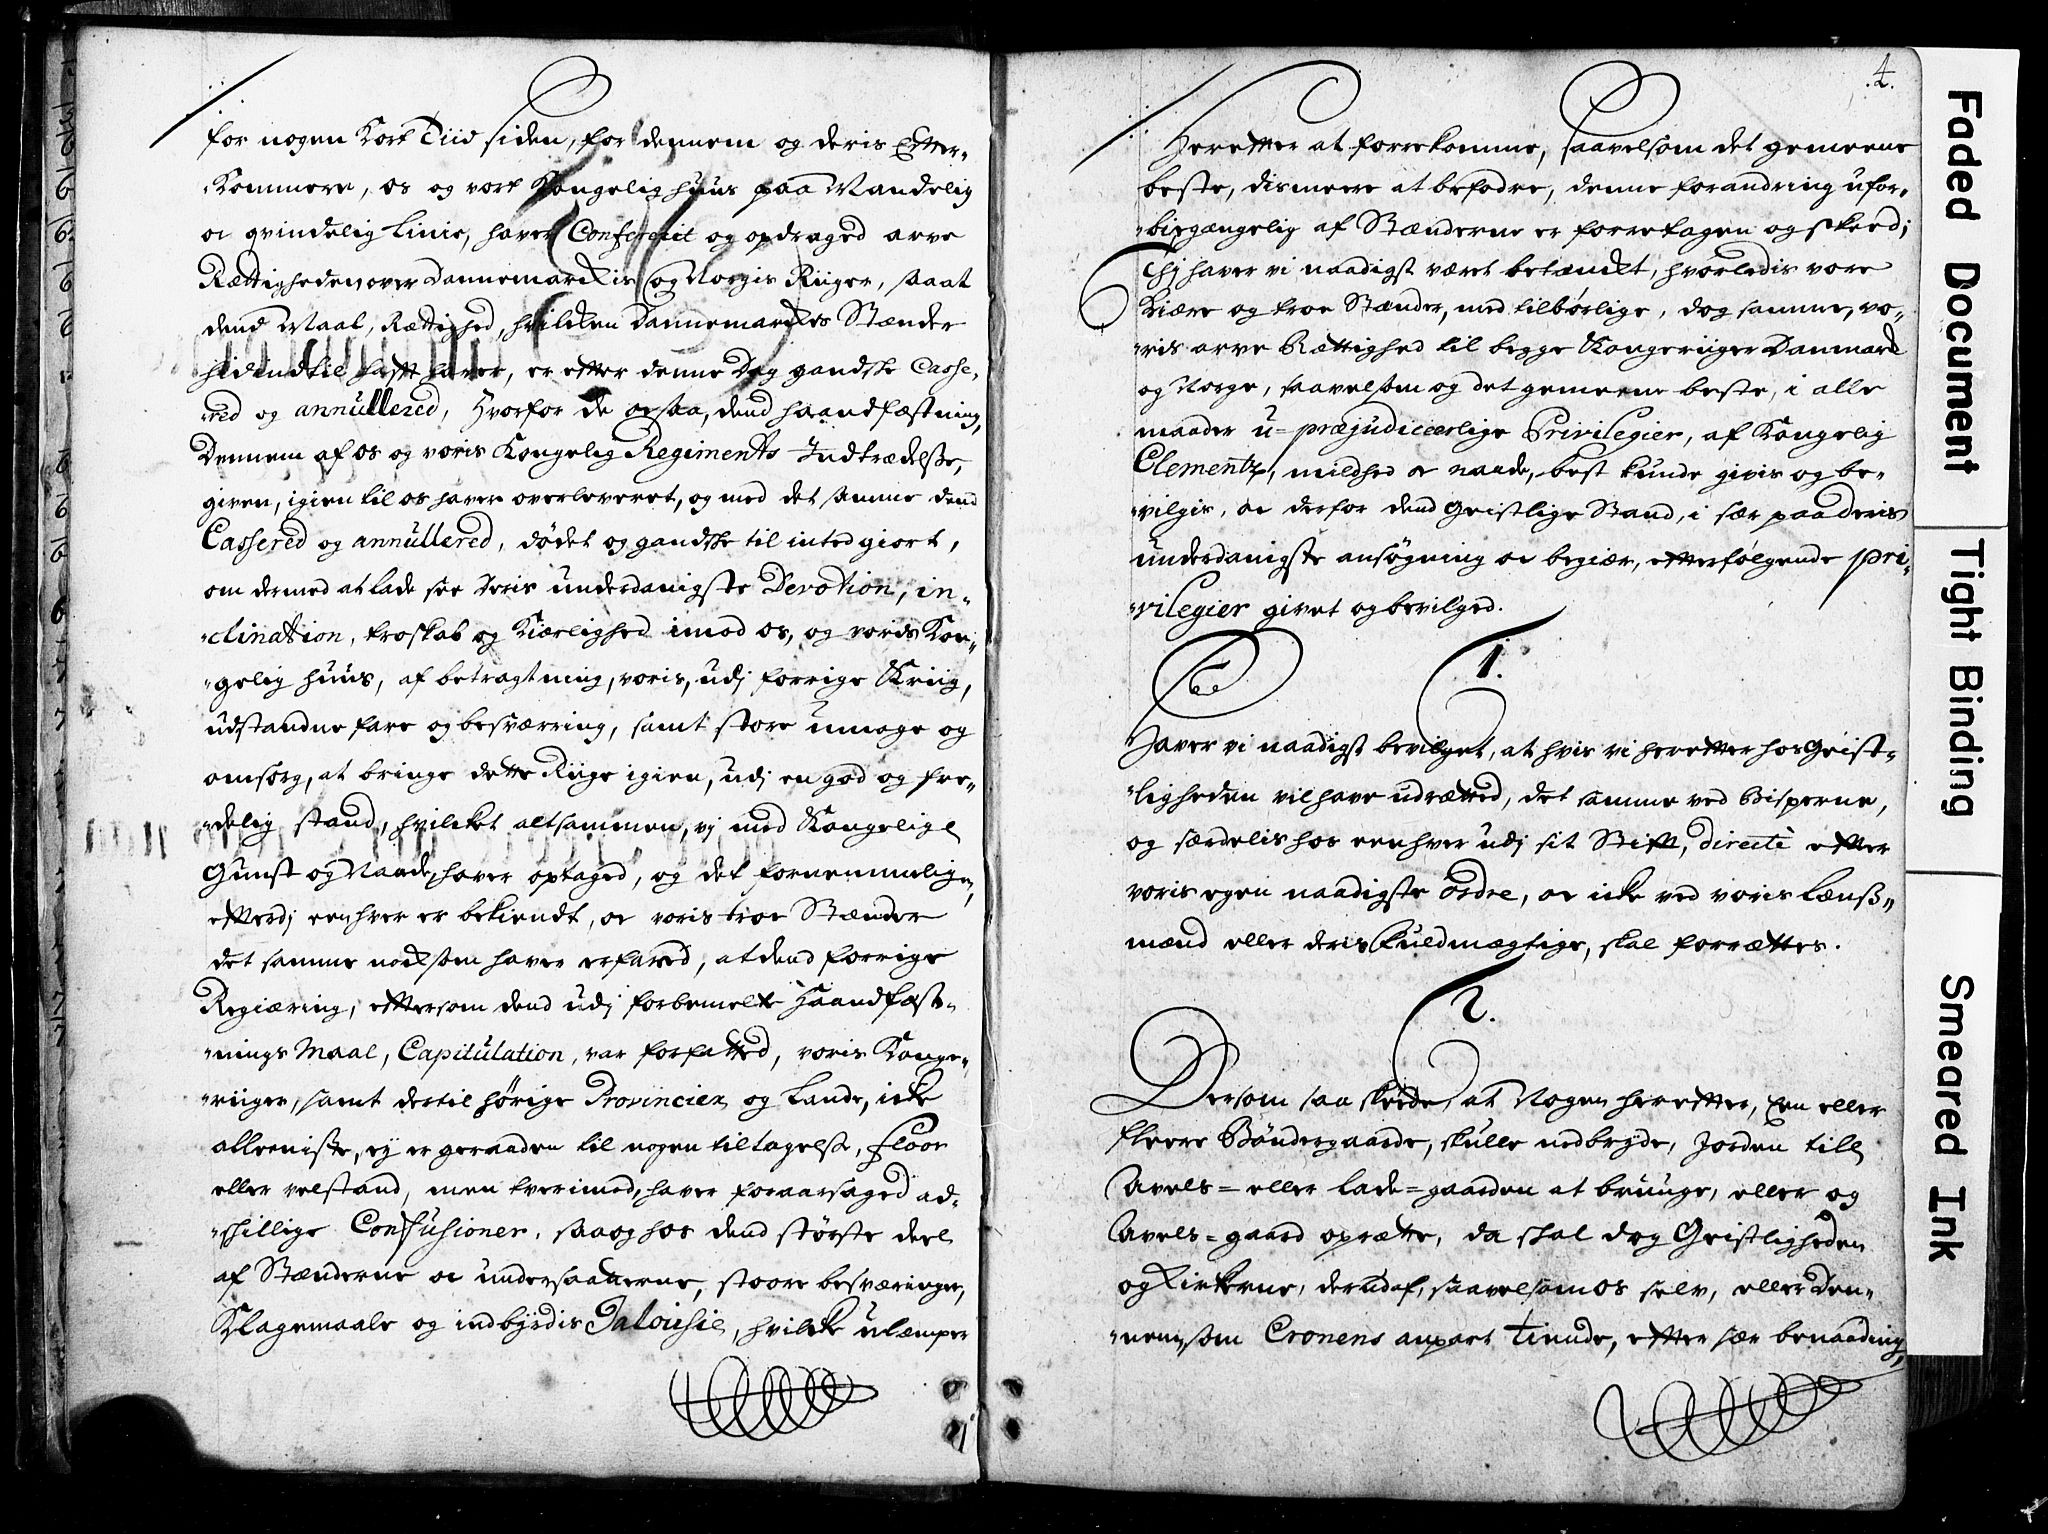 for nogen Kort Tiid siden, for dennem og deris Efter-
-kommere, os og vort Kongelig huus paa Mandelig
oc qvindelig Linie, haver Confererit og opdraged arve
Rettigheden over Dannemarckis og Norgis Riiger, saa at
dend Maal, Rettighed, hvilcken Dannemarckes Stænder
hidindtil hafft haver, er efter denne Dag gandske Casse-
-red og annullered, Hvorfor de ocsaa, dend haandfæstning,
Dennem af os og voris Kongelig Regiments Indtrædelse,
given, igien til os haver overleveret, og med det samme dend
Cassered og annullered, dødet og gandske til inted giort,
om dermed at lade see deris underdanigste Devotion, in-
-clination, troskab og Kiærlighed imod os, og voris Kon-
-gelig huus, af betragtning, voris, udj forrige Kriig,
udstandne fare og besværring, samt store umage og
omsorg, at bringe dette Riige igien, udj en god og fre-
-delig stand, hvilcket altsammen, vj med Kongelige
Gunst og Naade, haver optaged, og det fornemmelige,
efterdj eenhver er bekiendt, oc voris troe Stænder
det samme nocksom haver erfared, at dend forrige
Regiæring, eftersom dend udj forbemelte Haandfæst-
-nings Maal, Capitulation, var forfatted, voris Konge-
-riiger, samt dertil hørige Provincier og Lande, icke
alleeniste, ej er geraaden til nogen tiltagelse, floor
eller velstand, men tverimod, haver foraarsaged ad-
-skillige Confusioner, saa og hos dend største deel
af Stænderne oc undersaatterne, stoore besværinger,
Klagemaale og indbyrdis Jalousie, hvilcke ulæmper
4.
Herefter at forrekomme, saavelsom det gemeene
beste, dismeere at befodre, denne forandring ufor-
-bigængelig af Stænderne er forretagen og skeed;
Thj haver vi naadigst været betænckt, hvorledis vore
Kiære og troe Stænder, med tilbørlige, dog samme, vo-
-ris arve Rettighed til begge Kongeriiger Danmarck
og Norge, saavelsom og det gemeene beste, i alle
maader u-præjudiceerlige Privilegier, af Kongelig
Clementz, mildhed oc naade, best kunde givis og be-
-vilgis, oc derfor dend Geistlige Stand, i sær paa deris
underdanigste ansøgning oc begiær, efterfølgende pri-
-vilegier givet og bevilged.
1.
Haver vi naadigst bevilget, at hvis vi herefter hos Geist-
-ligheden vil have udrætted, det samme ved Bisperne,
og særdelis hos eenhver udj sit Stift, directè efter
voris egen naadigste ordre, oc icke ved voris Lænß-
mænd eller deris fuldmægtige, skal forrættes.
2.
Dersom saa skeede, at Nogen herefter, Een eller
fleere Bøndergaarde, skulle nedbryde, Jorden till
Avels- eller lade-gaarden at bruuge, eller og
Avels-gaard oprætte, da skal dog Geistligheden
og Kirkerne, derudaf, saavelsom os selv, eller Den-
-nem, som Cronens anpart Tiende, efter sær benaading,
Faded Document
Tight Binding
Smeared Ink